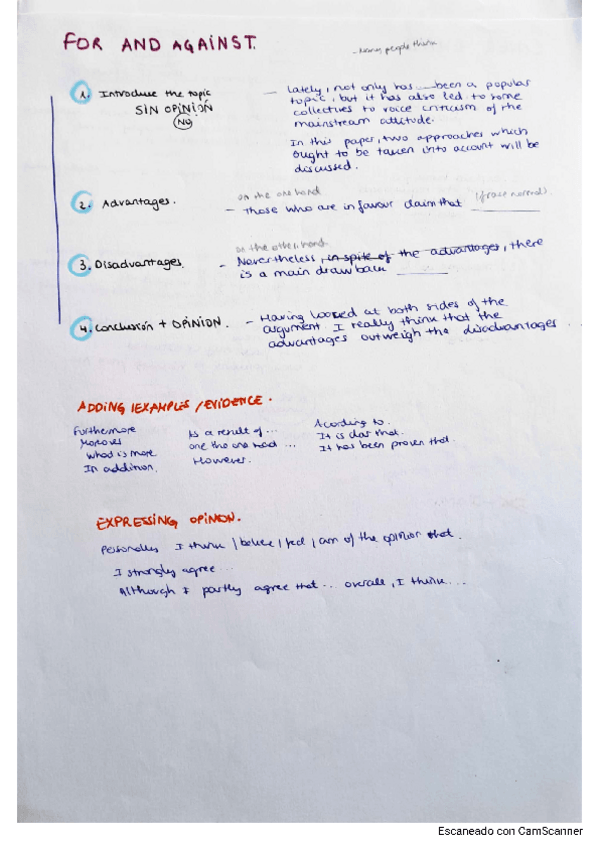 FOR AND AGAINST.
- Many people think
1. Introduce the topic
SIN OPINIÓN
NO
- Lately, not only has ___ been a popular
topic, but it has also led to some
collectives to voice criticism of the
mainstream attitude.
In this paper, two approaches which
ought to be taken into account will be
discussed.
2. Advantages.
on the one hand
(frase normal)
- Those who are in favour claim that ________
3. Disadvantages.
on the other hand
- Nevertheless, in spite of the advantages, there
is a main drawback ______
4. Conclusión + OPINION.
- Having looked at both sides of the
argument I really think that the
advantages outweigh the disadvantages.
ADDING EXAMPLES / EVIDENCE.
Furthermore
Moroves
Whad is more
In addition.
As a result of ...
one the one hand ...
However.
Acording to.
It is clar that.
It has been proven that.
EXPRESSING OPINION.
Personally I think / believe / feel / am of the opinion that.
I strongly agree ...
Although I partly agree that ... overall, I think....
Escaneado con CamScanner